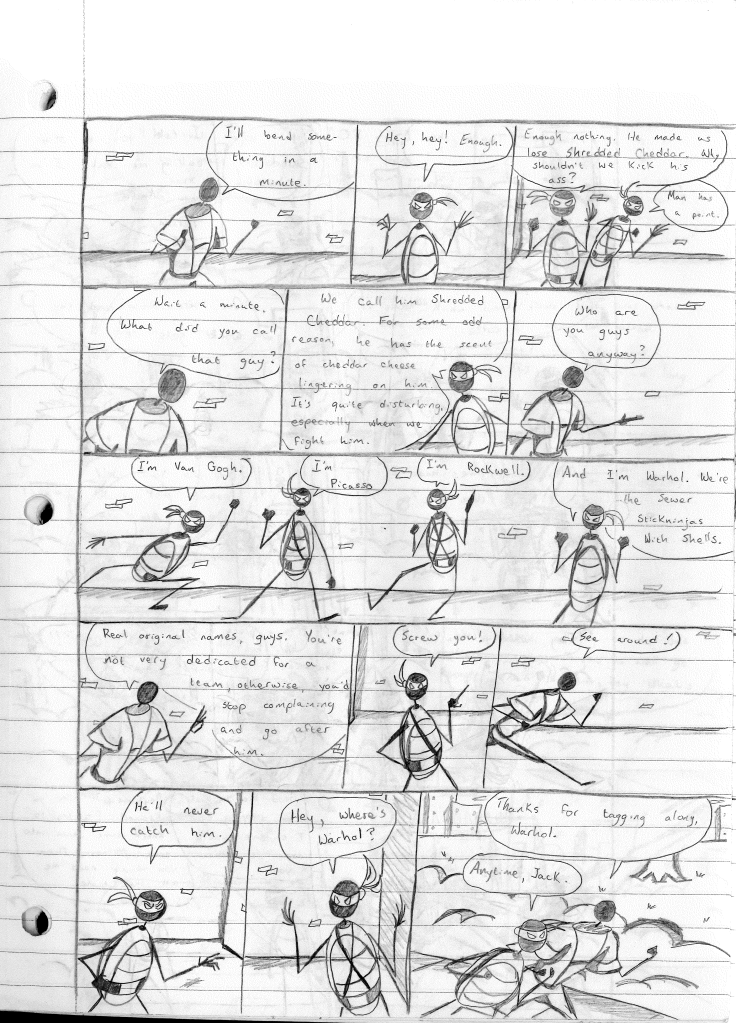 I'll bend some-
thing in a
minute.
Hey, hey! Enough.
Enough nothing. He made us
lose Shredded Cheddar. Why
shouldn't we kick his
ass?
Man has
a point.
Wait a minute.
What did you call
that guy?
We call him Shredded
Cheddar. For some odd
reason, he has the scent
of cheddar cheese
lingering on him.
It's quite disturbing,
especially when we
fight him.
Who are
you guys
anyway?
I'm Van Gogh.
I'm
Picasso
I'm Rockwell.
And I'm Warhol. We're
the Sewer
Stickninjas
With Shells.
Real original names, guys. You're
not very dedicated for a
team, otherwise, you'd
stop complaining
and go after
him.
Screw you!
See around!
He'll never
catch him.
Hey, where's
Warhol?
Thanks for tagging along,
Warhol.
Anytime, Jack.